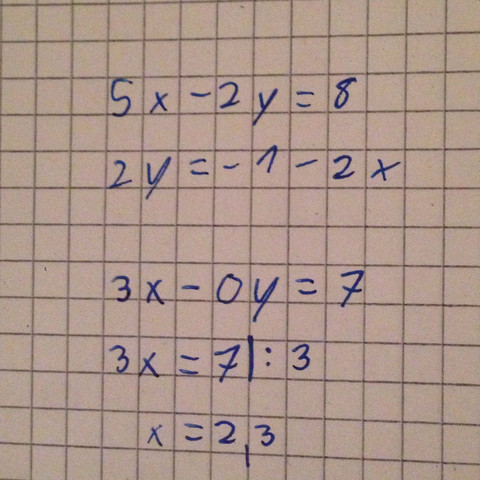 5x - 2y = 8
2y = -1 - 2x
3x - 0y = 7
3x = 7 | : 3
x = 2,3